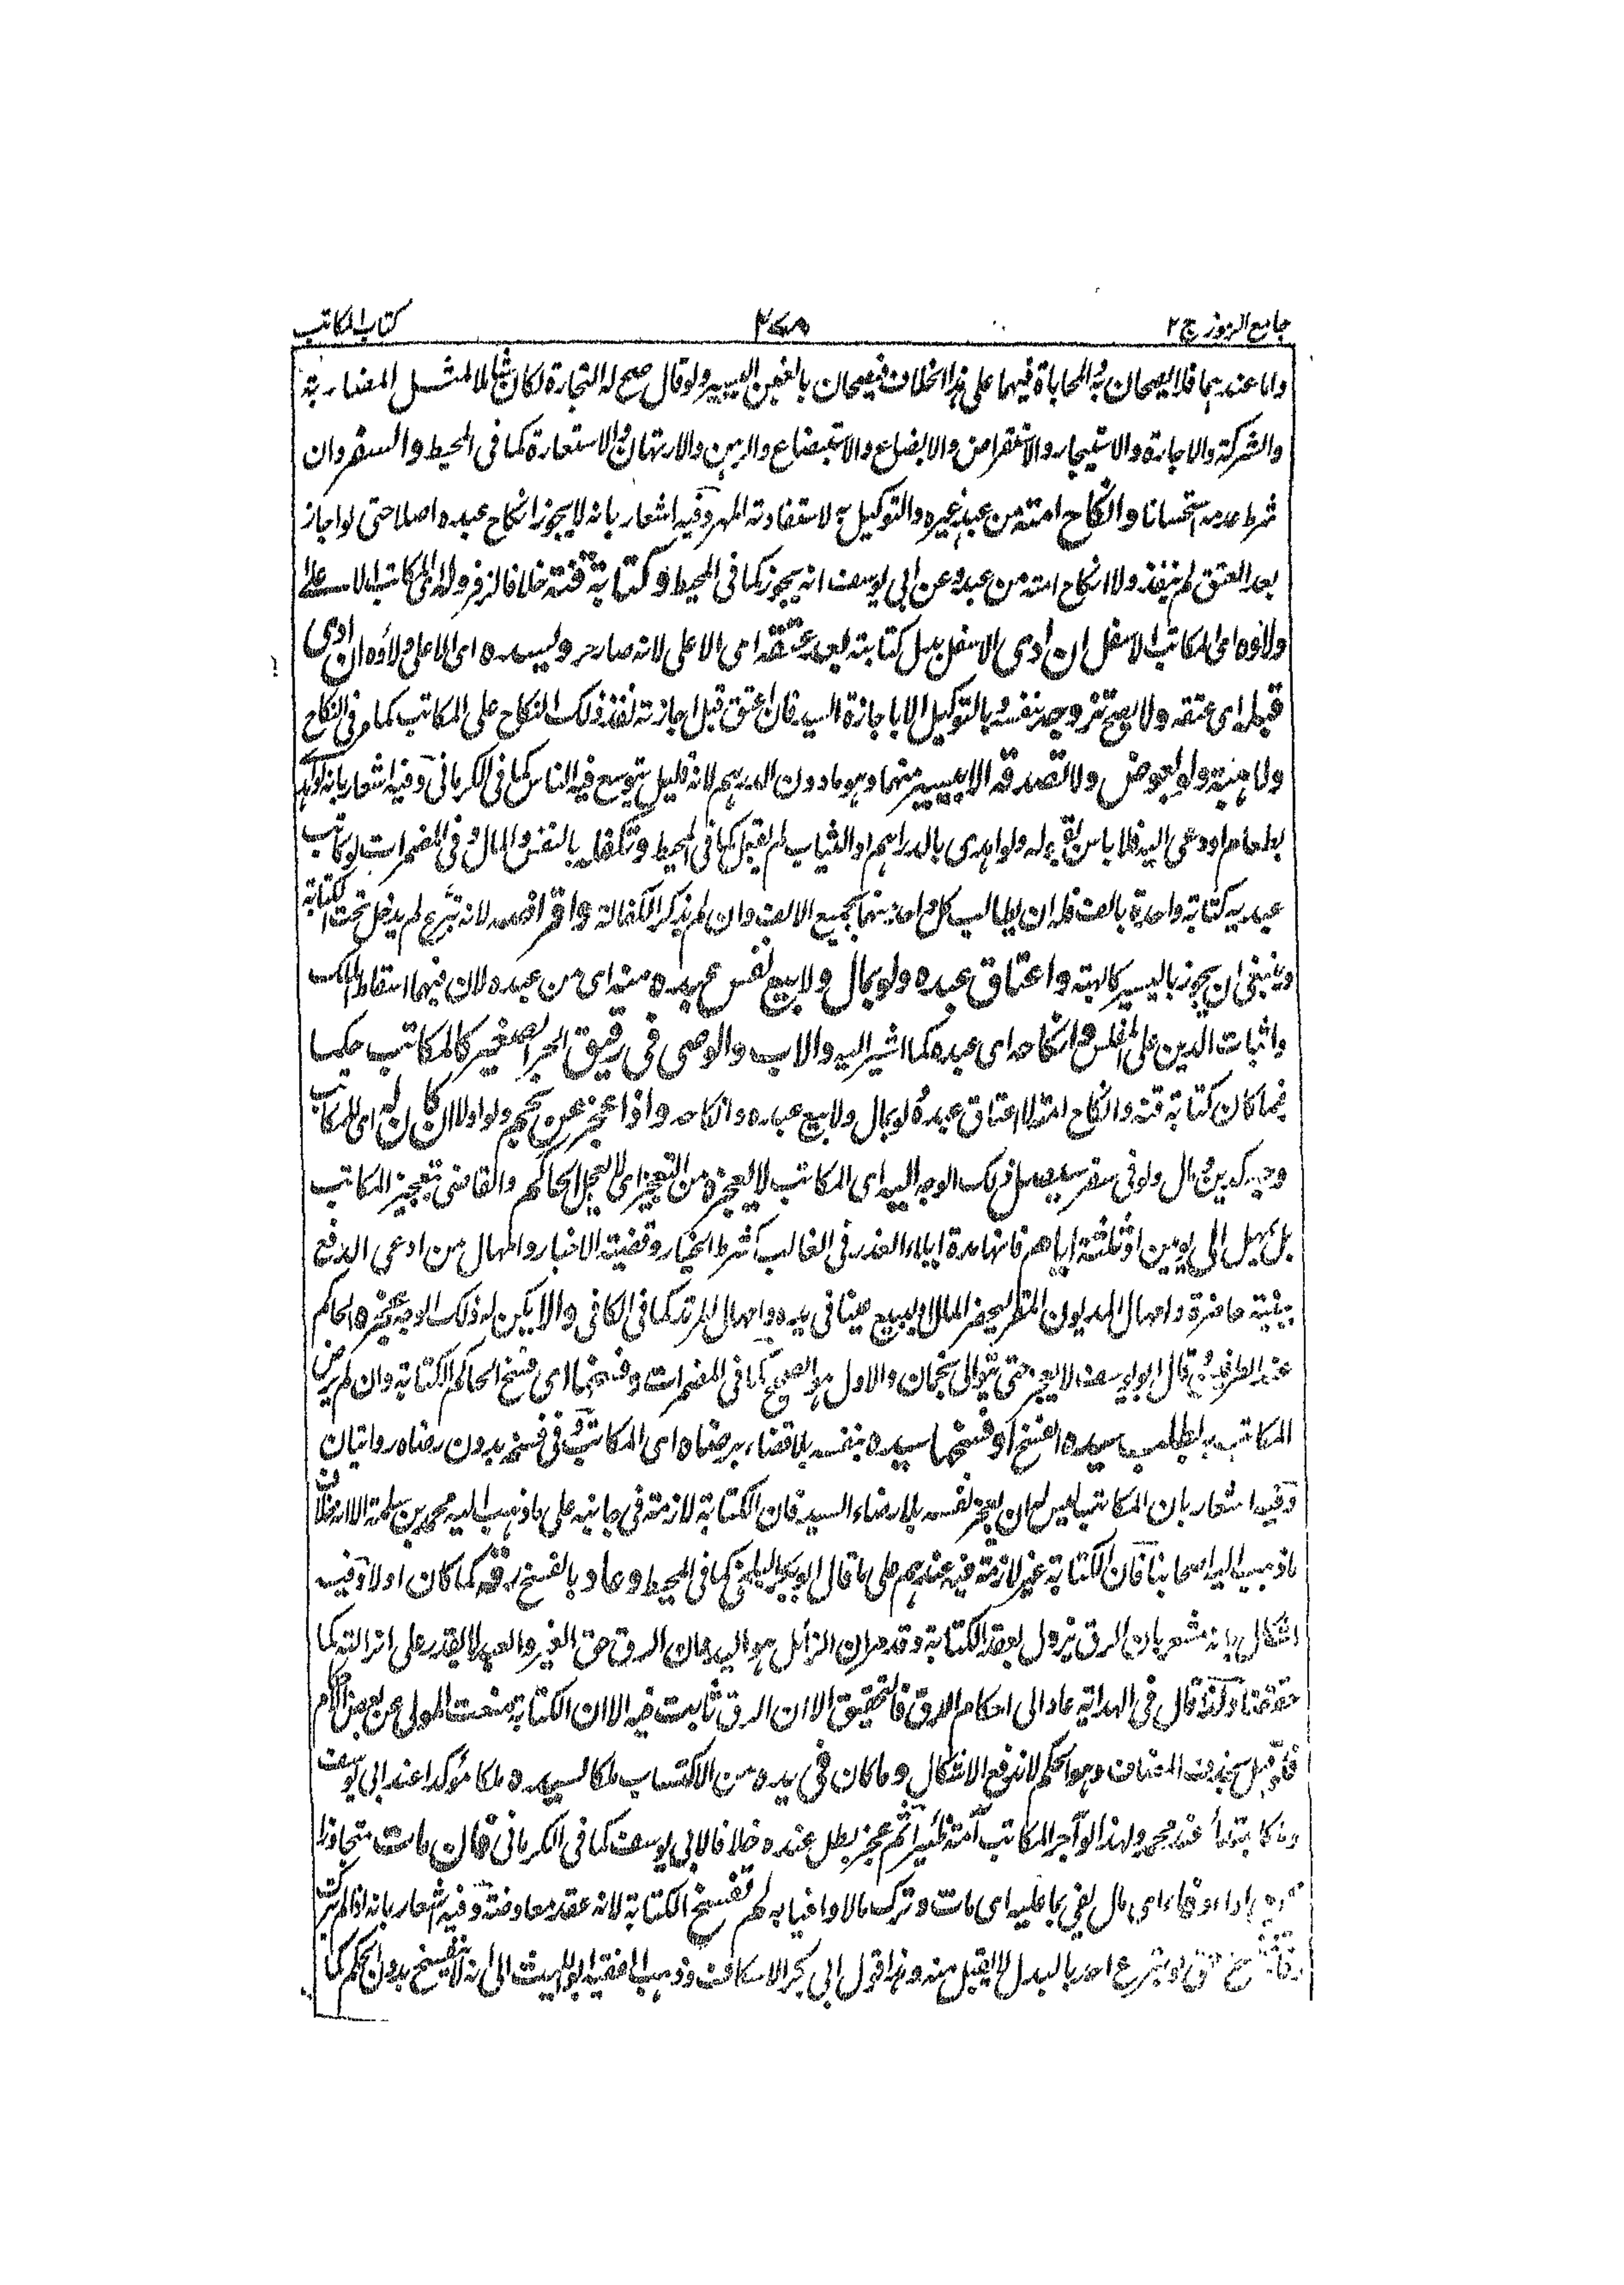 جامع الرموز ج ٢
كتاب المكاتب
واما عندهما فلا يصحان والمحاباة فيهما على هذا الخلاف فيصحان بالغبن اليسير ولو قال صح له التجارة لكان شاملا لمثل المضاربة
والشركة والاجارة والاستيجار والاستقراض والابضاع والاستبضاع والرهن والارتهان والاستعارة كما فى المحيط والسفر وان
شرط عدمه استحسانا وانكاح امته من عبد غيره والتوكيل به لاستفادته المهر وفيه اشعار بانه لا يجوز انكاح عبده اصلا حتى لو اجاز
بعد العتق لم ينفذ ولا انكاح امته من عبده وعن ابى يوسف انه يجوز كما فى المحيط وكتابة قنه خلافا لزفر وله اى للمكاتب الاعلى
ولاؤه اى المكاتب الاسفل ان ادى الاسفل بدل كتابته بعد عتقه اى الاعلى لانه صار حر ولسيده اى الاعلى ولاؤه ان ادى
قبله اى عتقه ولا يصح تزوجه بنفسه وبالتوكيل الا باجازة السيد فان اعتق قبل اجازته نفذ ذلك النكاح على المكاتب كما مر فى النكاح
ولا هبته ولو بعوض ولا تصدقه الا بيسير منهما وهو ما دون الدرهم لانه قليل يتوسع فيه الناس كما فى الكرمانى وفيه اشعار بانه لو اهدى
بطعام او دعى اليه فلا باس بقبوله ولو اهدى بالدراهم او الثياب لم يقبل كما فى المحيط وتكفله بالنفس والمال وفى المضمرات لو كاتب
عبديه كتابة واحدة بالف فله ان يطالب كل واحد منهما بجميع الالف وان لم يذكر الكفالة واقراضه لانه تبرع لم يدخل تحت الكتابة
وينبغى ان يجوز باليسير كالهبة واعتاق عبده ولو بمال ولا بيع نفس عبده منه اى من عبده لان فيهما اسقاط الملك
واثبات الدين على المفلس وانكاحه اى عبده كما اشير اليه والاب والوصى فى رقيق الحر الصغير كالمكاتب حكما
فيما كان كتابة قنه وانكاح امته لا اعتاق عبده ولو بمال ولا بيع عبده وانكاحه واذا عجز عن نجم ولو اولا ان كان له اى للمكاتب
وجه كدين ومال ولو فى سفر سيصل ذلك الوجه اليه اى المكاتب لا يعجزه من التعجيز اى لا يعجل الحاكم والقاضى تعجيز المكاتب
بل يمهل الى يومين او ثلثة ايام فانها مدة ايلاء العذر فى الغالب كشرط الخيار وقضية الاخبار وامهال من ادعى الدفع
ببينة حاضرة وامهال المديون المقر ليحضر المال او ليبيع عينا فى يده وامهال المرتد كما فى الكافى والا يكن له ذلك الوجه عجزه الحاكم
عند الطرفين وقال ابو يوسف لا يعجز حتى يتوالى نجمان والاول هو الصحيح كما فى المضمرات وفسخها اى فسخ الحاكم الكتابة وان لم يرض
المكاتب به بطلب سيده الفسخ او فسخها سيده بنفسه بلا قضاء برضاه اى المكاتب وفى فسخه بدون رضاه روايتان
وفيه اشعار بان المكاتب ليس له ان يعجز نفسه بلا رضاء السيد فان الكتابة لازمة فى جانبه على ما ذهب اليه محمد بن سلمة الا انه خلاف
ما ذهب اليه اصحابنا فان الكتابة غير لازمة فيه عندهم على ما قال ابو بكر البلخى كما فى المحيط وعاد بالفسخ رقه كما كان اولا وفيه
اشكال بانه مشعر بان الرق يزول بعقد الكتابة وقد مر ان الزائل هو اليد فان الرق حق الغير والعبد لا يقدر على ازالته كما
حققنا ولكنه قال فى الهداية عاد الى احكام الرق فالتحقيق الا ان الرق ثابت فيه الا ان الكتابة منعت المولى عن بعض الاحكام
فلو قيل بحذف المضاف وهو الحكم لاندفع الاشكال وما كان فى يده من الاكتساب ملكا لسيده ملكا مؤكدا عند ابى يوسف
عند محمد ولهذا لو آجر المكاتب امته ظئيرا ثم عجز بطل عنده خلافا لابى يوسف كما فى الكرمانى فان مات
وفاء اى مال يفى بما عليه اى مات وترك مالا وافيا به لم تفسخ الكتابة لانه عقد معاوضة وفيه اشعار بانه اذا لم يترك
احد بالبدل لا يقبل منه وهذا قول ابى بكر الاسكاف وذهب الفقيه ابو الليث الى انه لا ينفسخ بدون الحكم كما